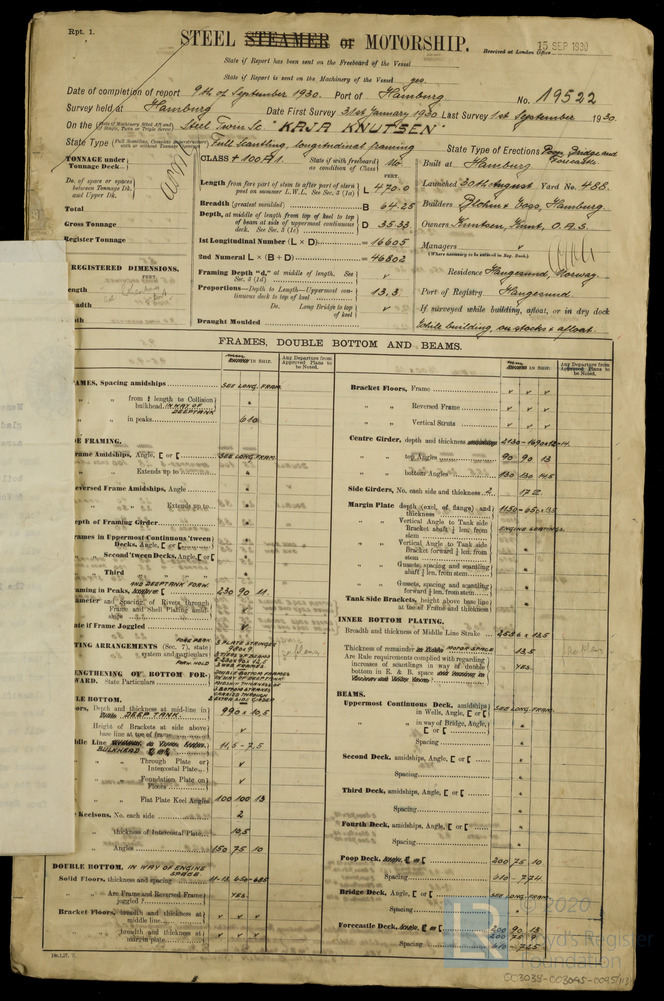 Rpt. 1.
STEEL STEAMER or MOTORSHIP.
Received at London Office
15 SEP 1930
State if Report has been sent on the Freeboard of the Vessel
State if Report is sent on the Machinery of the Vessel
Date of completion of report 9th of September 1930. Port of Hamburg
No. 19522
Survey held at Hamburg Date First Survey 31st January 1930 Last Survey 1st September 1930
On the Steel Twin Sc "KAJA KNUTSEN"
State Type Full scantling, longitudinal framing
State Type of Erections Poop, Bridge and Forecastle
TONNAGE under Tonnage Deck
Do. of space or spaces between Tonnage Dk. and Upper Dk.
Total
Gross Tonnage
Register Tonnage
REGISTERED DIMENSIONS.
CLASS + 100 A 1. State if with freeboard as condition of Class No
FEET.
Length from fore part of stem to after part of stern post on summer L.W.L. See Sec. 3 (1a) L 470.0
Breadth (greatest moulded) B 64.25
Depth, at middle of length from top of keel to top of beam at side of uppermost continuous deck. See Sec. 3 (1c) D 35.33
1st Longitudinal Number (L × D) = 16605
2nd Numeral L × (B + D) = 46802
Framing Depth "d," at middle of length. See Sec. 3 (1d) v
Proportions—Depth to Length—Uppermost continuous deck to top of keel 13.3
Do. Long Bridge to top of keel v
Draught Moulded
Built at Hamburg
Launched 30th August Yard No. 488.
Builders Blohm & Voss, Hamburg.
Owners Knutsen, Knut, O.A.S.
Managers v
(Where necessary to be entered in Reg. Book.)
Residence Haugesund, Norway
Port of Registry Haugesund.
If surveyed while building, afloat, or in dry dock
While building, on stocks & afloat
FRAMES, DOUBLE BOTTOM AND BEAMS.
IN SHIP. Any Departure from Approved Plans to be Noted.
IN SHIP. Any Departure from Approved Plans to be Noted.
AMES, Spacing amidships SEE LONG. FRAM.
" " from length to Collision bulkhead IN WAY OF DEEPTANK "
" " in peaks 610
DE FRAMING.
rame Amidships, Angle, [ or [ SEE LONG. FRAM.
" " Extends up to "
eversed Frame Amidships, Angle "
" " Extends up to "
epth of Framing Girder "
rames in Uppermost Continuous 'tween Decks, Angle, [ or [ "
" Second 'tween Decks, Angle, [ or [ "
" Third " " "
AND DEEPTANK FORW.
aming in Peaks, Angle or [ 230 90 11
ameter and Spacing of Rivets through Frame and Shell Plating amidships
ate if Frame Joggled v
TING ARRANGEMENTS (Sec. 7), state system and particulars
FORE PEAK
FORW. HOLD
ENGTHENING OF BOTTOM FORWARD. State Particulars
LE BOTTOM.
ors, Depth and thickness at mid-line in DEEP TANK 990 x 10,5
Height of Brackets at side above base line at toe of frame v
ddle Line BULKHEAD 11,5 - 7,5
" " Through Plate or Intercostal Plate v
" " Foundation Plate on Floors v
" " Flat Plate Keel Angles 100 100 13
Keelsons, No. each side 2
" thickness of Intercostal Plate 10,5
" Angles 150 75 10
DOUBLE BOTTOM. IN WAY OF ENGINE SPACE
Solid Floors, thickness and spacing
" " Are Frame and Reversed Frame joggled? YES.
Bracket Floors, breadth and thickness at middle line v v v
" " breadth and thickness at margin plate v v v
Bracket Floors, Frame v v v
" " Reversed Frame v v v
" " Vertical Struts v v v
Centre Girder, depth and thickness
" " top Angles 90 90 13
" " bottom Angles 130 130 14.5
Side Girders, No. each side and thickness 2
Margin Plate depth (excl. of flange) and thickness
" Vertical Angle to Tank side Bracket abaft ¼ len. from stem
" Vertical Angle to Tank side Bracket forward ¼ len. from stem "
" Gussets, spacing and scantling abaft ¼ len. from stem "
" Gussets, spacing and scantling forward ¼ len. from stem "
Tank Side Brackets, height above base line at toe of Frame and thickness "
INNER BOTTOM PLATING.
Breadth and thickness of Middle Line Strake 2556 x 13,5
Thickness of remainder MOTOR SPACE 13,5
Are Rule requirements complied with regarding increases of scantlings in way of double bottom in E. & B. space YES.
BEAMS.
Uppermost Continuous Deck, amidships in Wells, Angle, [ or [ SEE LONG. FRAM.
" " in way of Bridge, Angle, [ or [ "
Spacing "
Second Deck, amidships, Angle, [ or [ "
Spacing "
Third Deck, amidships, Angle, [ or [ "
Spacing "
Fourth Deck, amidships, Angle, [ or [ "
Spacing "
Poop Deck, Angle, [ or [ 200 75 10
Spacing 610 - 774
Bridge Deck, Angle, [ or [ SEE LONG. FRAM.
Spacing "
Forecastle Deck, Angle, [ or [ 200 90 13
200 75 9
Spacing 610 - 725
© 2020
Lloyd's Register
Foundation
CC3038-CC3045-0095/13